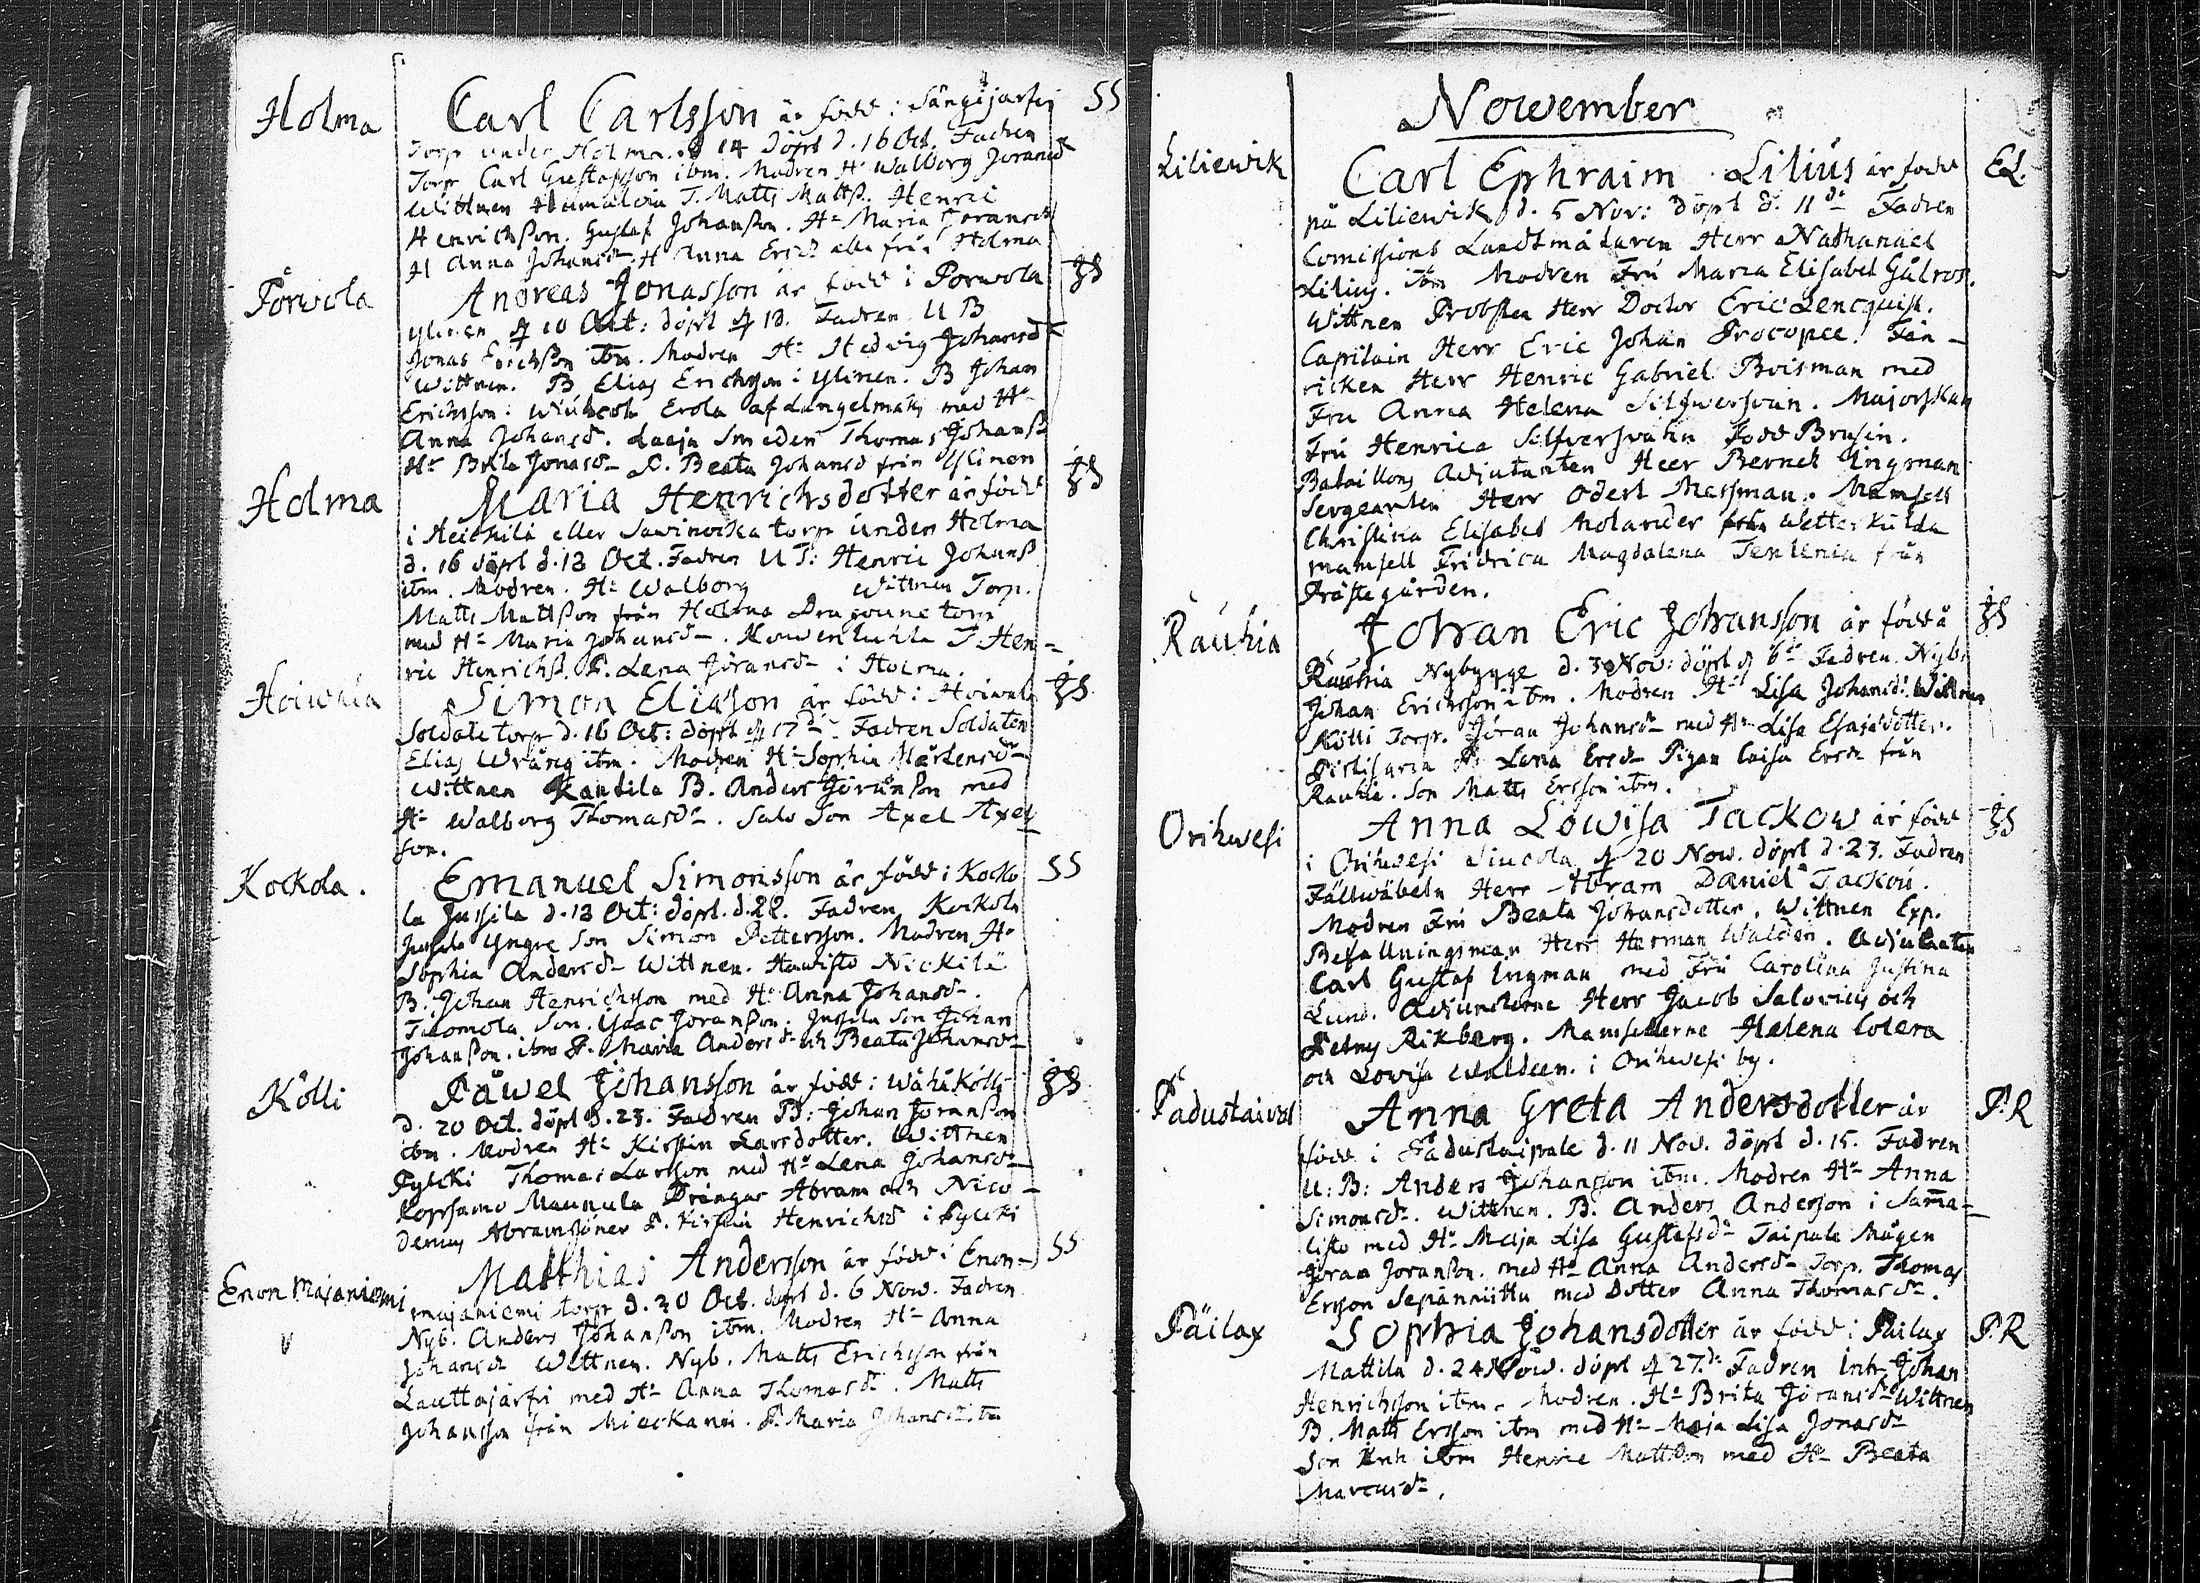 Holma
Carl Carlsson är född i Sängijärfvi
SS
Torp under Holma d 14 döpt d. 16 Oct. Fadren
Torp Carl Gustafsson ibm. Modren H: Walborg Joransd
Wittnen T. Matts Mattss. Henric
Henrichsson. Gustaf Johansson. H: Maria Joransd
H Anna Johansd H Anna Ersd alla från Holma
Porwola
Andreas Jonasson är född i Porwola
JS
Ylinen d 10 Oct: döpt d 13. Fadren U B
Jonas Erichsson ibm. Modren H: Hedvig Johansd
Wittnen. B Elias Erichsson i Ylinen. B Johan
Erichsson. Erola af Längelmäki med H:
Anna Johansd. Smeden Thomas Johanss
H: Brita Jonasd P. Beata Johansd från Ylinen
Holma
Maria Henrichsdotter är född
JS
i Heickilä eller torp under Holma
d. 16 döpt d. 18 Oct. Fadren U T: Henric Johanss
ibm. Modren. H: Walborg Wittnen Torp.
Matts Mattsson från Holma Dragoune torp
med H: Maria Johansd. T Hen-
ric Henrichss. P. Lena Joransd i Holma.
Hoiwala
Simon Eliasson är född i Hoiwala
JS
Soldate torp d. 16 Oct: döpt d 17de Fadren Soldaten
Elias Wräng ibm. Modren H: Sophia Mårtensd
Wittnen Kantila B. Anders Göransson med
H: Walborg Thomasd. Salo Son Axel Axel
son.
Kockola.
Emanuel Simonsson är född i Kocko
SS
la Jussila d. 18 Oct: döpt. d. 22. Fadren Kockola
Jussila Yngre Son Simon Pettersson. Modren H:
Sophia Andersd Wittnen. Nickilä
B. Johan Henrichsson med H: Anna Johansd.
Tuomola Son. Isaac Joransson. Jussila Son Johan
Johansson. ibm P. Maria Andersd och Beata Johansd
Kölli
Påwel Johansson är född i Wähä Kölli
JS
d. 20 Oct. döpt d. 23. Fadren B: Johan Joransson
ibm. Modren H: Kirstin Larsdotter. Wittnen
Pylcki Thomas Larsson med H: Lena Johansd
Maunula Drängar Abram och Nico-
demus Abramsöner P. Kirstin Henrichsd i Pylcki
Enon Majaniemi
Matthias Andersson är född i Enon-
SS
majaniemi torp d. 30 Oct. döpt d. 6 Now. Fadren
Nyb. Anders Johansson ibm. Modren H: Anna
Johansd Wittnen. Nyb. Matts Erichsson från
Lauttajärfvi med H: Anna Thomasd. Matts
Johansson från P. Maria Johansd ibm
Nowember
Liliewik
Carl Ephraim Lilius är född
EL.
på Liliewik d. 5 Nov: döpt d. 11de Fadren
Comissions Landtmätaren Herr Nathanael
Lilius. ibm Modren Fru Maria Elisabet Gålros.
Wittnen Probsten Herr Doctor Eric Lencquist.
Capitain Herr Eric Johan Procopée. Fän-
ricken Herr Henric Gabriel Boisman med
Fru Anna Helena Silfwersvan. Majorskan
Fru Henrica Silfversvahn född Brusin.
Bataillons Adjutanten Herr Berndt Ingman
Sergeanten Herr Odert Messman. Mamsell
Christina Elisabet Molander från Wetterkulda
mamsell Fridrica Magdalena Tenlenia från
Prästegården.
Rauhia
Johan Eric Johansson är född å
JS
Rauhia Nybygge d. 3 Nov: döpt d 6te Fadren. Nyb.
Johan Erichsson ibm. Modren H: Lisa Johansd. Wittnen
Kölli Torp. Jöran Johanss med H: Lisa Esaiædotter.
H: Lena Ersd Pigan Caisa Ersd från
Rauhia. Son Matts Ersson ibm.
Orihwesi
Anna Lowisa Tackow är född
JS
i Orihwesi d 20 Now. döpt d. 23. Fadren
Fältwäbeln Herr Abram Daniel Tackou.
Modren Fru Beata Johansdotter. Wittnen Exp.
Befallningsman Herr Herman Walden. Adjutanten
Carl Gustaf Ingman med Fru Carolina Justina
Lund. Adjuncterne Herr Jacob Salovius och
Petrus Rikberg. Mamsellerne Helena Lovera
och Lovisa Waldeen. i Orihwesi by.
Padustaival
Anna Greta Andersdotter är
P.R
född i Padustaipale d. 11 Nov. döpt d. 15. Fadren
U: B: Anders Johansson ibm. Modren H: Anna
Simonsd. Wittnen. B. Anders Andersson i Samma-
listo med H: Maja Lisa Gustafsd Taipale Mågen
Jöran Joransson. med H: Anna Andersd Torp. Thomas
Ersson Sepänniittu med Dotter Anna Thomasd.
Päilax
Sophia Johansdotter är född i Päilax
P.R
Mattila d. 24 Now. döpt d 27de Fadren Inh Johan
Henrichsson ibm. Modren. H: Brita Jöransd Wittnen
B. Matts Ersson ibm med H: Maja Lisa Jonasd
Son Inh ibm Henric Mattsson med H: Beata
Marcusd.